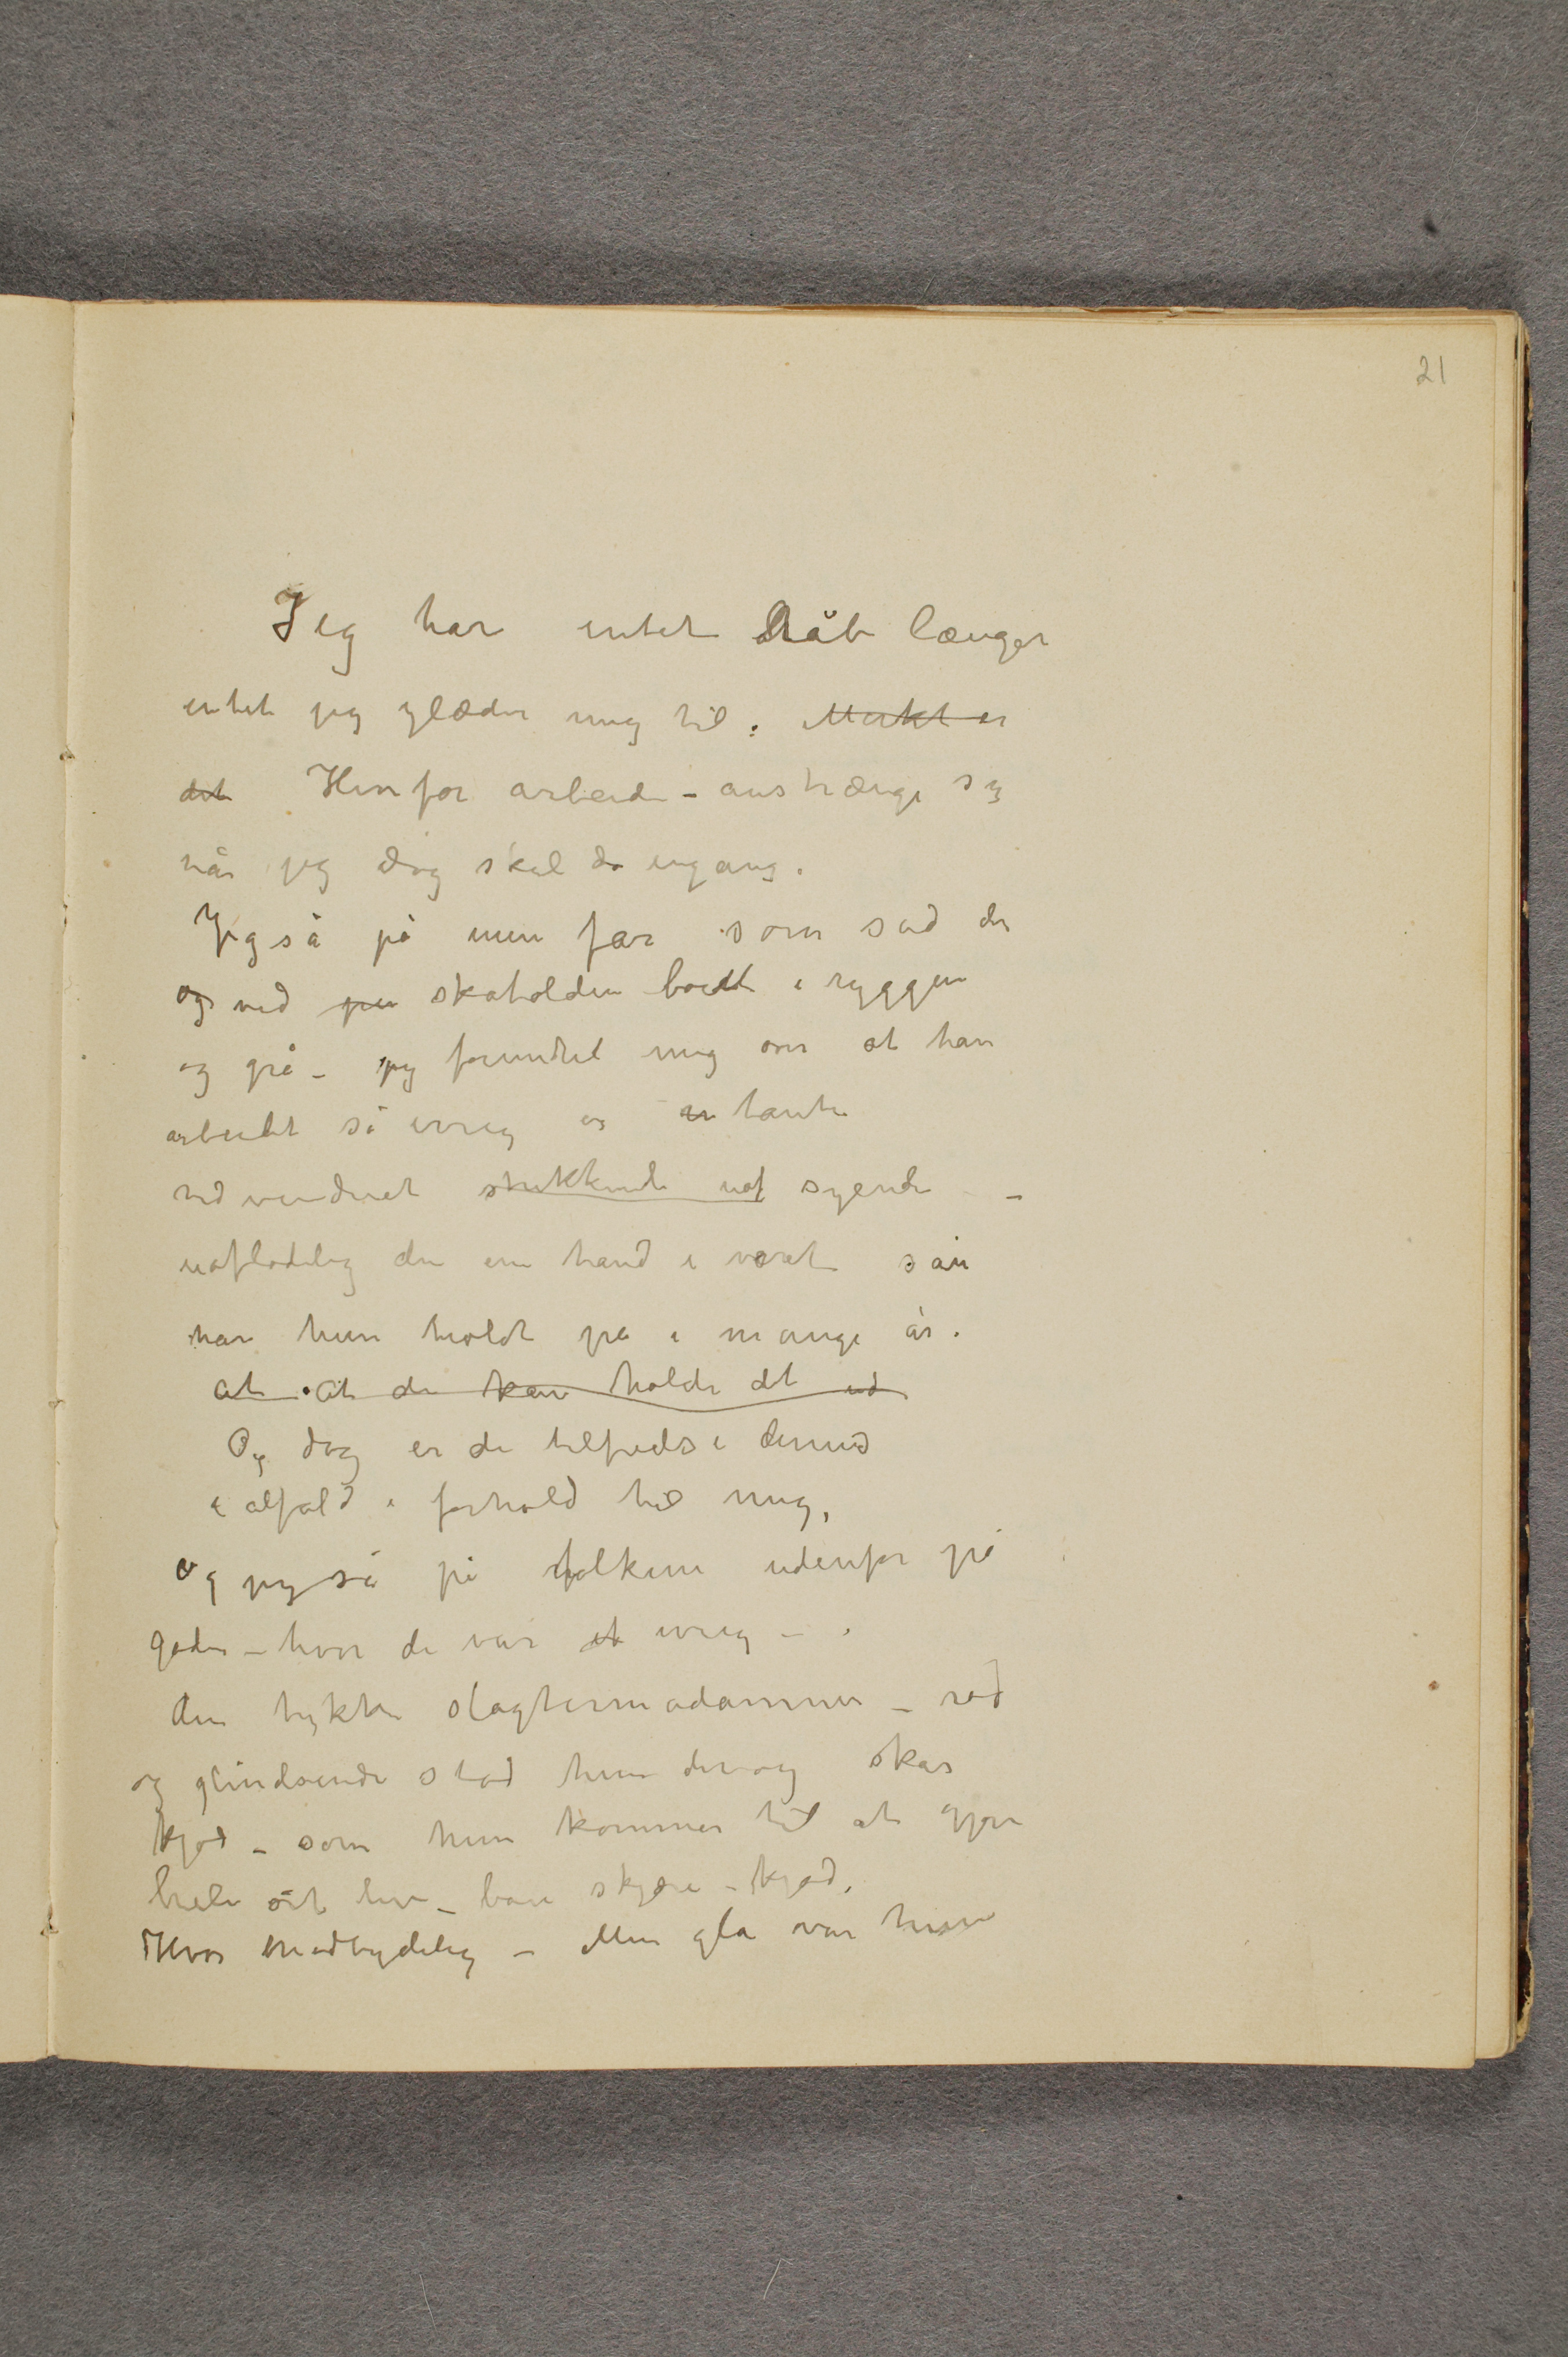 21
Jeg har intet håb længer
intet jeg glæder mig til. Mærkt er
det Hvorfor arbeide – anstrænge sig
når jeg dog skal dø engang.
Jeg så på min far som sad der
og ved skatolden boiet i ryggen
og grå – jeg forundret mig over at han
arbeidet så ivrig og tante
ved vinduet strikkende uaf syende –
uafladelig den ene hånd i været så
har hun holdt på i mange år.
at at de kan holde det ud
Og dog er de tilfreds i
i alfald i forhold til mig,
og jeg så på folkene udenfor på
gaden – hvor de var ivrig – .
den tykke slagtermadammen – rød
og glindsende stod hun der og skar
kjød – som hun kommer til at gjøre
hele sit liv – bare skjære – kjød.
Hvor modbydelig – Men gla var hun